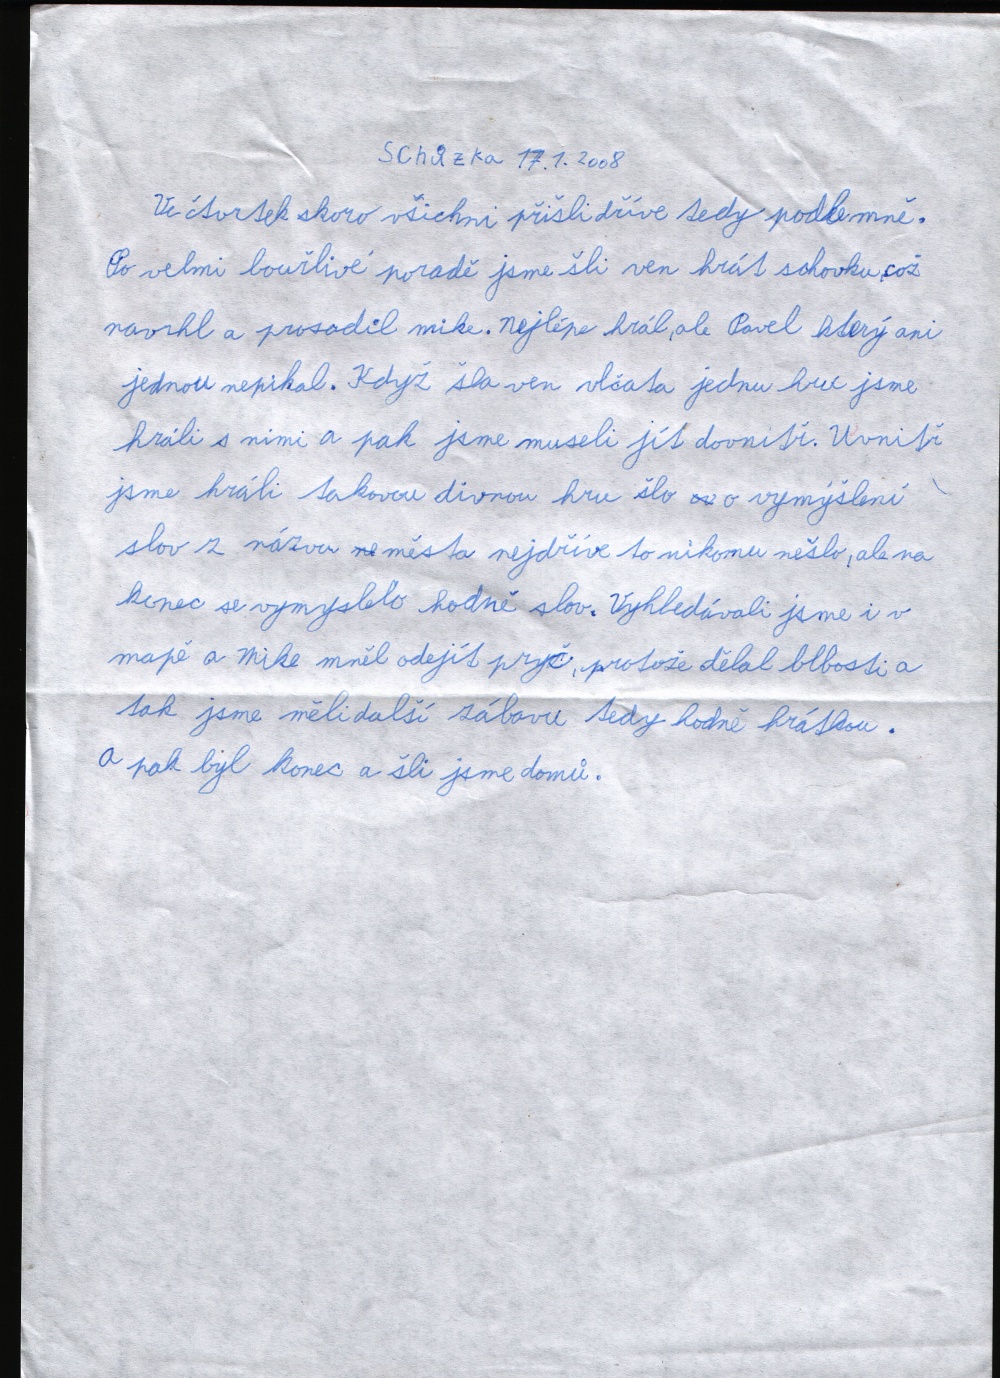 Schůzka 17.1.2008
Ve čtvrtek skoro všichni přišli dříve tedy podle mně.
Po velmi bouřlivé poradě jsme šli ven hrát schovku,což
navrhl a prosadil mike. Nejlépe hrál,ale Pavel který ani
jednou nepikal. Když šla ven vlčata jednu hru jsme
hráli s nimi a pak jsme museli jít dovnitř. Uvnitř
jsme hráli takovou divnou hru šlo o vymýšlení
slov z názvu města nejdříve to nikomu nešlo,ale na
konec se vymyslelo hodně slov. Vyhledávali jsme i v
mapě a Mike mněl odejít pryč, protože dělal blbosti a
tak jsme měli další zábavu tedy hodně krátkou.
A pak byl konec a šli jsme domů.